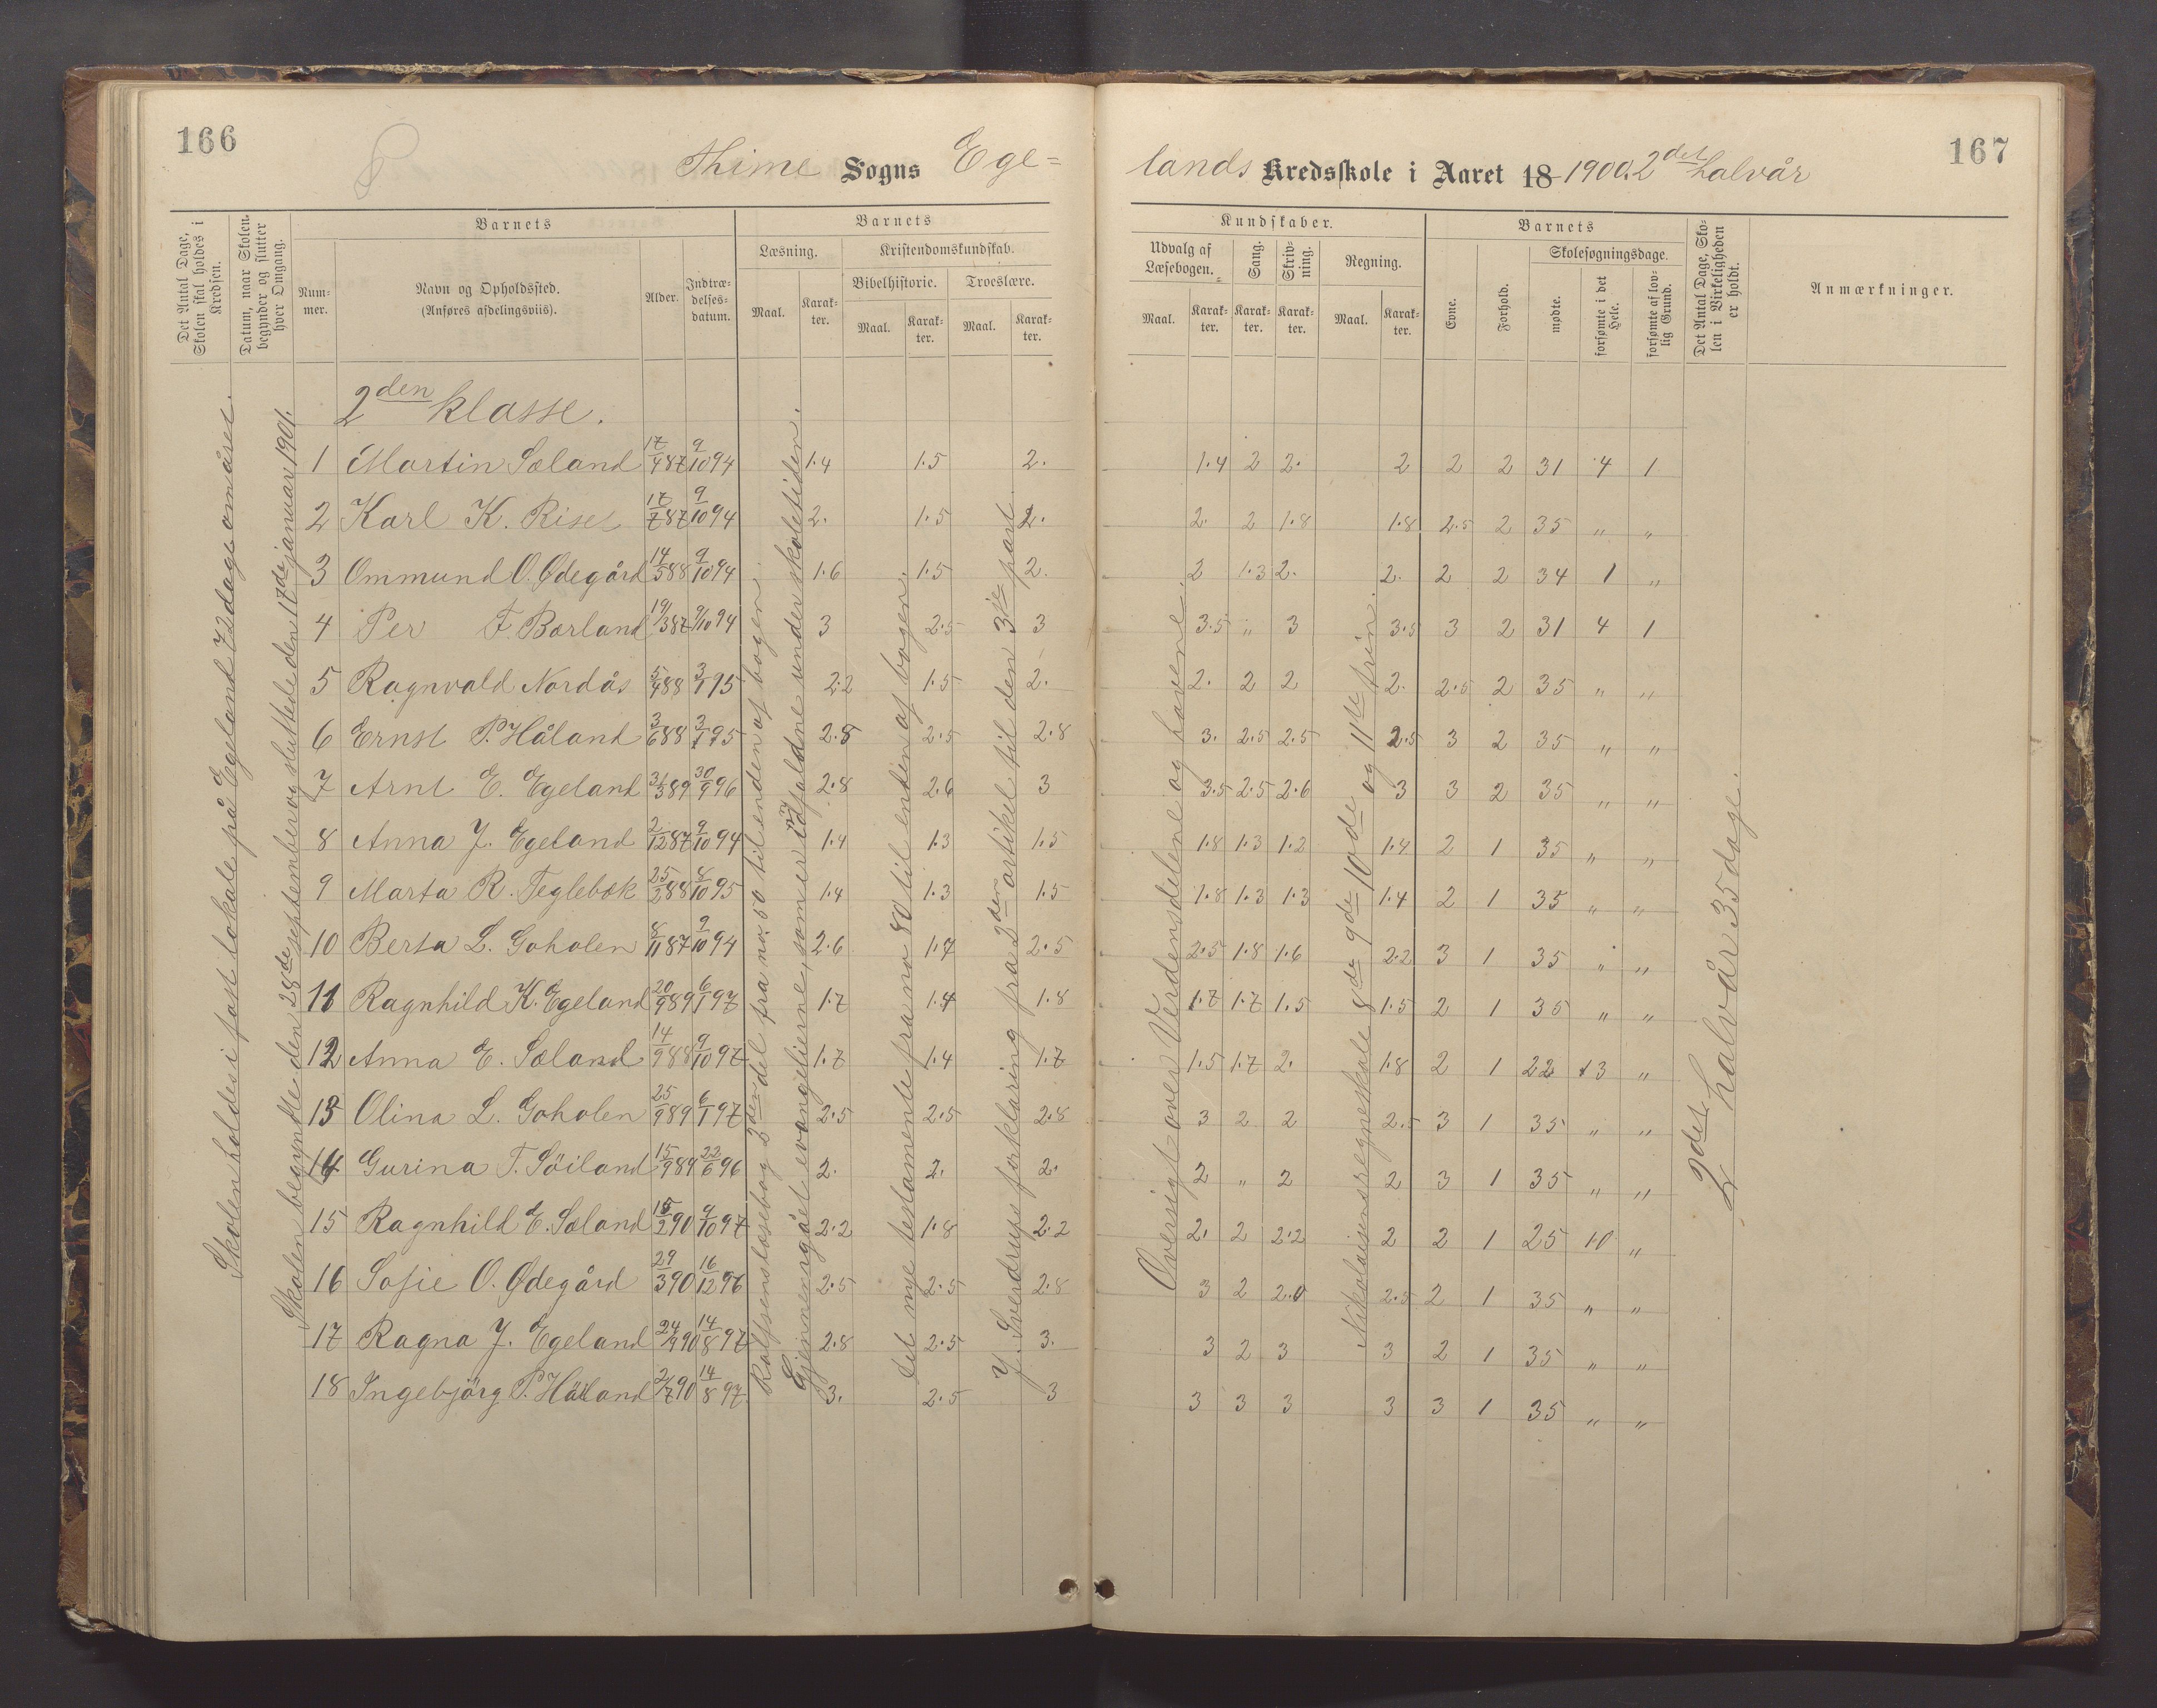 166
Thime Sogns Ege=
lands Kredsskole i Aaret 18 1900. 2det halvår
167
Det Antal Dage, Skolen skal holdes i Kredsen.
Datum, naar Skolen begynder og slutter hver Omgang.
Barnets
Num-mer.
Navn og Opholdssted.
(Anføres afdelingsviis).
Alder.
Indtræ-delses-datum.
Barnets
Læsning.
Maal.
Karak-ter.
Kristendomskundskab.
Bibelhistorie.
Maal.
Karak-ter.
Troeslære.
Maal.
Karak-ter.
Kundskaber.
Udvalg af Læsebogen.
Maal.
Karak-ter.
Sang.
Karak-ter.
Skriv-ning.
Karak-ter.
Regning.
Maal.
Karak-ter.
Barnets
Evne.
Forhold.
Skolesøgningsdage.
mødte.
forsømte i det Hele.
forsømte af lov-lig Grund.
Det Antal Dage, Sko-len i Virkeligheden er holdt.
Anmærkninger.
2den klasse.
1 Martin Sæland 17/4 87 9/10 94 1.4 1.5 2. 1.4 2 2. 2 2 2 31 4 1
2 Karl K. Riset 17/7 87 9/10 94 2. 1.5 2. 2. 2 1.8 1.8 2.5 2 35 " "
3 Ommund O. Ødegård 14/5 88 9/10 94 1.6 1.5 2. 2 1.3 2. 2. 2 2 34 1 "
4 Per F. Børland 19/3 87 9/10 94 3 2.5 3 3.5 " 3 3.5 3 2 31 4 1
5 Ragnvald Nordås 5/4 88 3/1 95 2.2 1.5 2. 2. 2 2 2. 2.5 2 35 " "
6 Ernst P. Håland 3/6 88 3/1 95 2.8 2.5 2.8 3. 2.5 2.5 2.5 3 2 35 " "
7 Arnt E. Egeland 31/5 89 30/9 96 2.8 2.6 3 3.5 2.5 2.6 3 3 2 35 " "
8 Anna J. Egeland 2/12 87 9/10 94 1.4 1.3 1.5 1.8 1.3 1.2 1.4 2 1 35 " "
9 Marta R. Teglebæk 25/2 88 8/10 95 1.4 1.3 1.5 1.8 1.3 1.3 1.4 2 1 35 " "
10 Berta L. Goholen 8/11 87 9/10 94 2.6 1.7 2.5 2.5 1.8 1.6 2.2 3 1 35 " "
11 Ragnhild K. Egeland 20/9 89 6/1 97 1.7 1.4 1.8 1.7 1.7 1.5 1.5 2 1 35 " "
12 Anna E. Sæland 14/9 88 9/10 97 1.7 1.4 1.7 1.5 1.7 2. 1.8 2 1 22 13 "
13 Olina L. Goholen 25/9 89 6/1 97 2.5 2.5 2.8 3 2 2 2.5 3 1 35 " "
14 Gurina T. Söiland 15/9 89 22/6 96 2. 2. 2. 2 " 2 2 3 1 35 " "
15 Ragnhild E. Sæland 15/2 90 9/10 97 2.2 1.8 2.2 2. 2 2.2 2 2 1 25 10 "
16 Sofie O. Ødegård 29/3 90 16/12 96 2.5 2.5 2.8 3 2 2.0 2.5 2 1 35 " "
17 Ragna J. Egeland 24/9 90 14/8 97 2.8 2.5 3. 3 2 3 3 2 1 35 " "
18 Ingebjörg P. Håland 2/7 90 14/8 97. 3. 2.5 3 3 3 3 3 3 1 35 " "
Skolen holdes i fast lokale på Egeland 72 dage om året.
Skolen begyndte den 28de september og sluttede den 17de januar 1901.
Rolfsens læsebog 2den del fra no. 50 til enden af bogen.
Gjennemgået evangelierne, som er indfaldne under skoletiden.
Det nye testamente fra no 80 til enden af bogen.
J. Sverdrups forklaring fra 2den artikel til den 3die part.
Oversigt over Verdensdelene og havene.
Nikolaisens regneskole 8de 9de 10de og 11te trin.
2det halvår 35 dage.